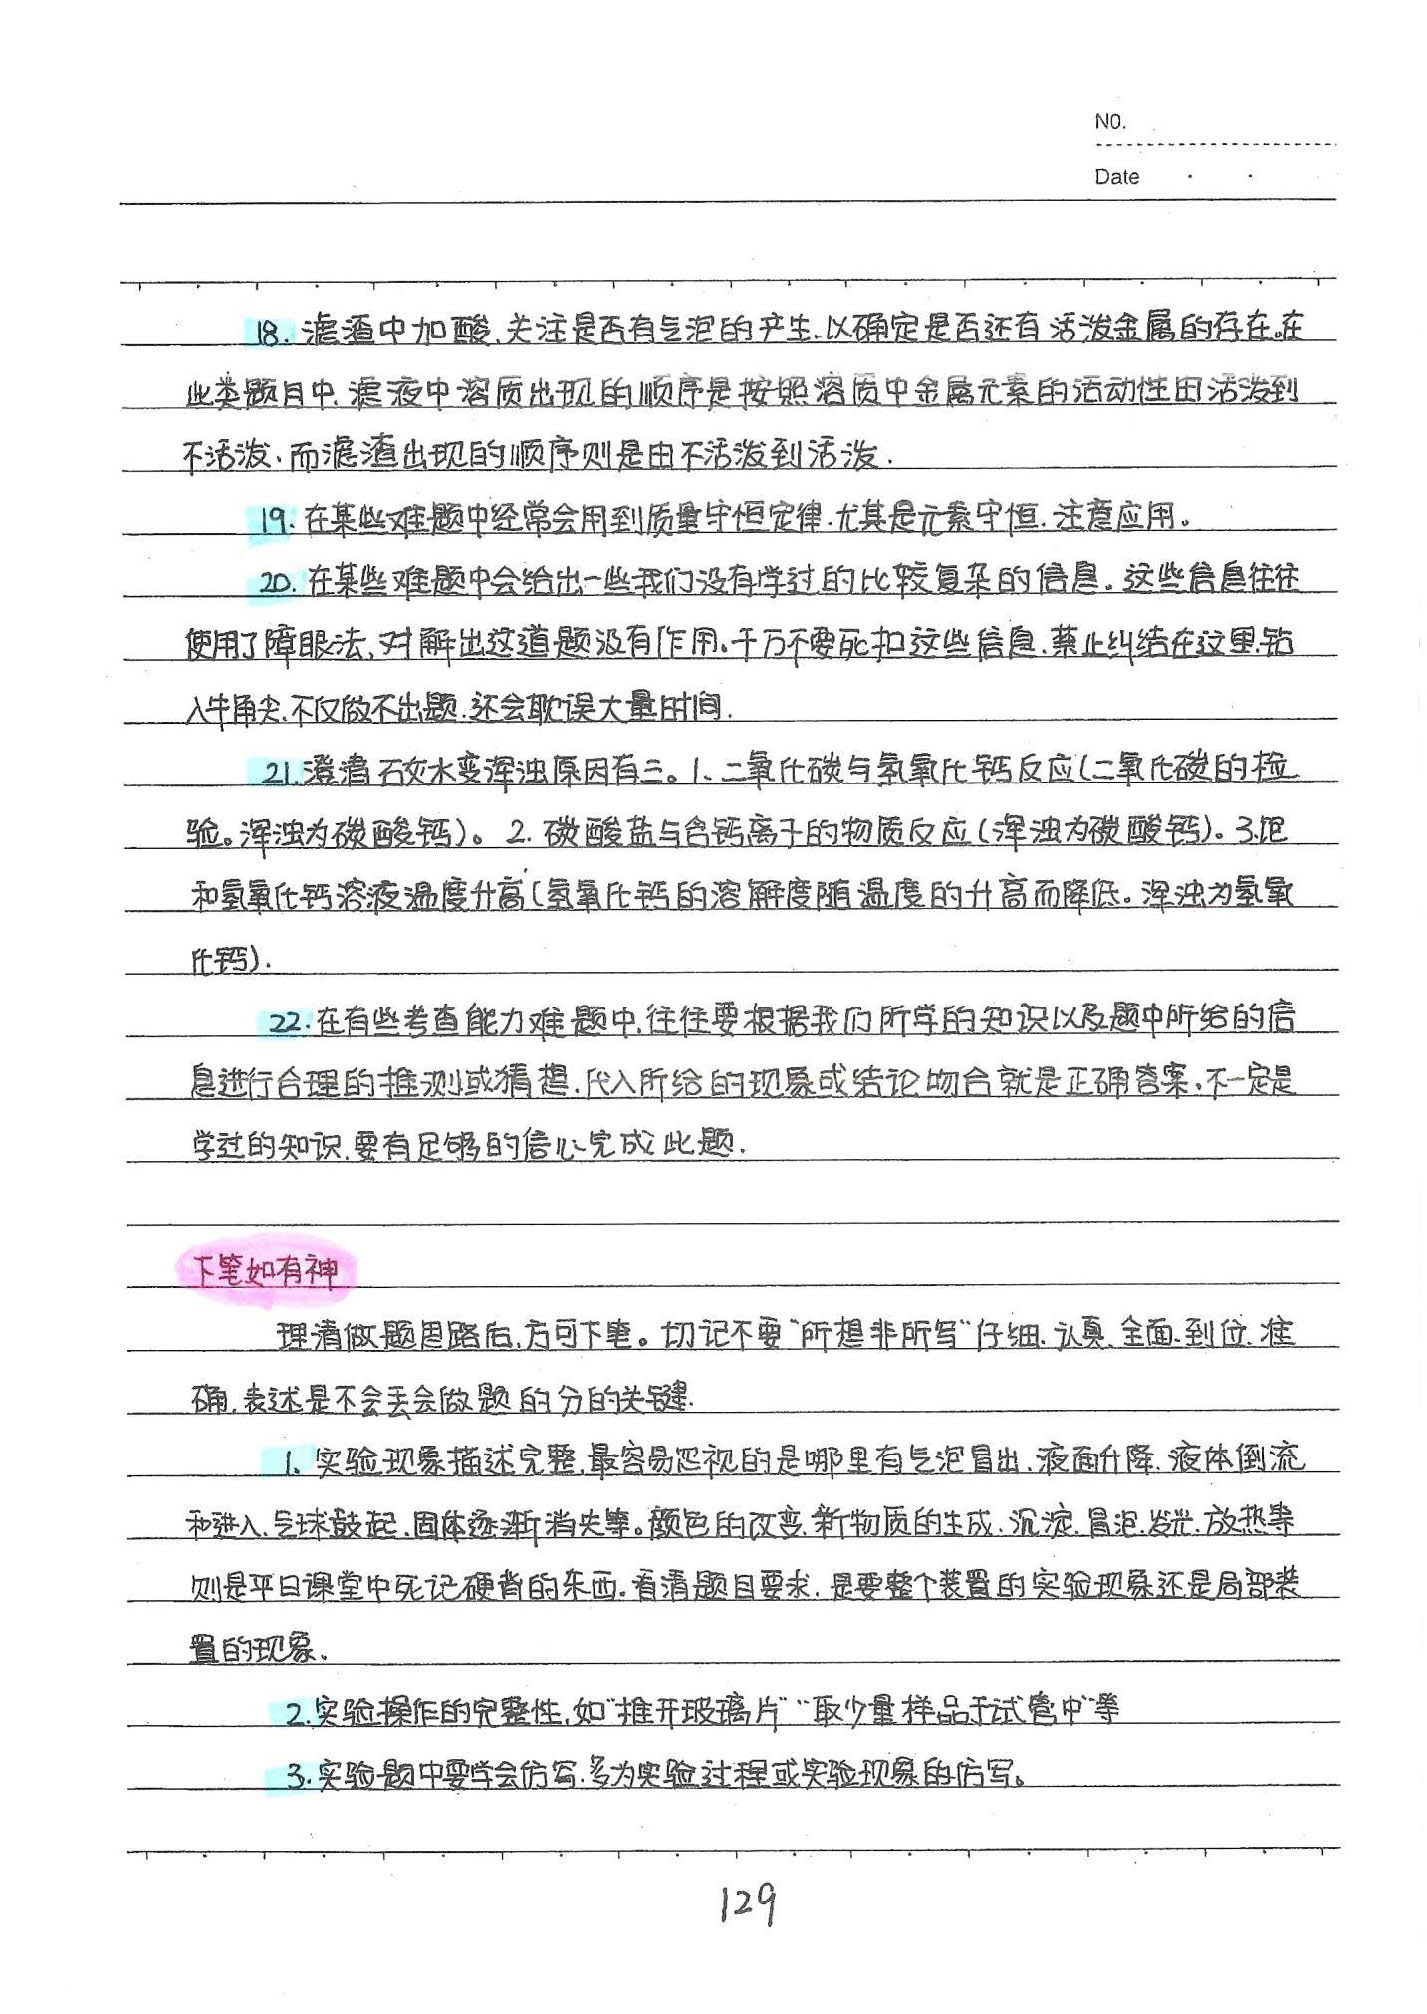 NO.
Date
18. 滤渣中加酸、关注是否有气泡的产生、以确定是否还有活泼金属的存在。在
此类题目中、滤液中溶质出现的顺序是按照溶质中金属元素的活动性由活泼到
不活泼、而滤渣出现的顺序则是由不活泼到活泼.
19. 在某些难题中经常会用到质量守恒定律.尤其是元素守恒.注意应用。
20. 在某些难题中会给出一些我们没有学过的比较复杂的信息。这些信息往往
使用了障眼法、对解出这道题没有作用。千万不要死扣这些信息、禁止纠结在这里、钻
入牛角尖、不仅做不出题.还会耽误大量时间.
21. 澄清石灰水变浑浊原因有三。1、二氧化碳与氢氧化钙反应(二氧化碳的检
验。浑浊为碳酸钙)。2. 碳酸盐与含钙离子的物质反应(浑浊为碳酸钙)。3.饱
和氢氧化钙溶液温度升高(氢氧化钙的溶解度随温度的升高而降低。浑浊为氢氧
化钙).
22. 在有些考查能力难题中、往往要根据我们所学的知识以及题中所给的信
息进行合理的推测或猜想、代入所给的现象或结论吻合就是正确答案、不一定是
学过的知识.要有足够的信心完成此题.
下笔如有神
理清做题思路后、方可下笔。切记不要“所想非所写”仔细、认真、全面、到位、准
确、表述是不会丢会做题的分的关键.
1、实验现象描述完整、最容易忽视的是哪里有气泡冒出、液面升降、液体倒流
和进入、气球鼓起、固体逐渐消失等。颜色的改变、新物质的生成、沉淀、冒泡、发光、放热等
则是平日课堂中死记硬背的东西。看清题目要求、是要整个装置的实验现象还是局部装
置的现象.
2. 实验操作的完整性、如“推开玻璃片”“取少量样品于试管中”等
3. 实验题中要学会仿写、多为实验过程或实验现象的仿写。
129